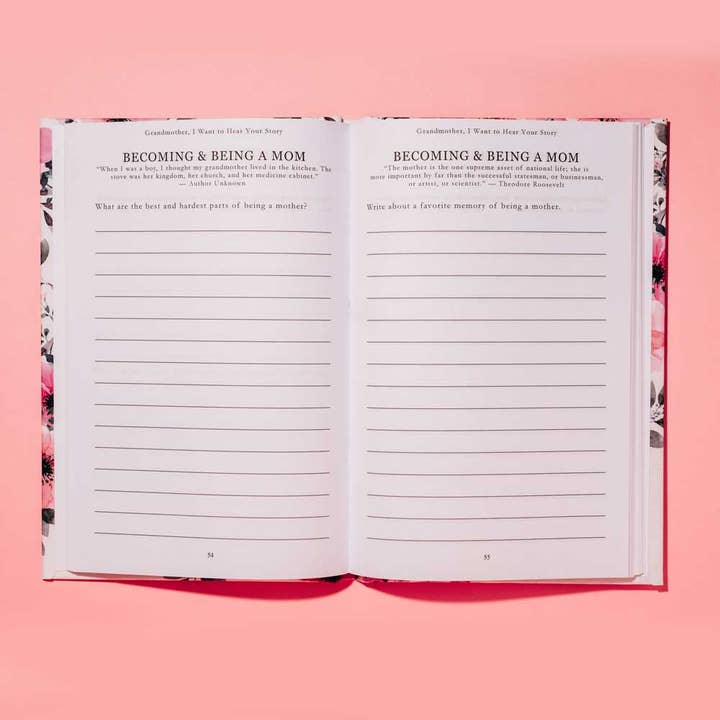 Grandmother, I Want to Hear Your Story
BECOMING & BEING A MOM
"When I was a boy, I thought my grandmother lived in the kitchen. The
stove was her kingdom, her church, and her medicine cabinet."
— Author Unknown
What are the best and hardest parts of being a mother?
54
Grandmother, I Want to Hear Your Story
BECOMING & BEING A MOM
"The mother is the one supreme asset of national life; she is
more important by far than the successful statesman, or businessman,
or artist, or scientist." — Theodore Roosevelt
Write about a favorite memory of being a mother.
55